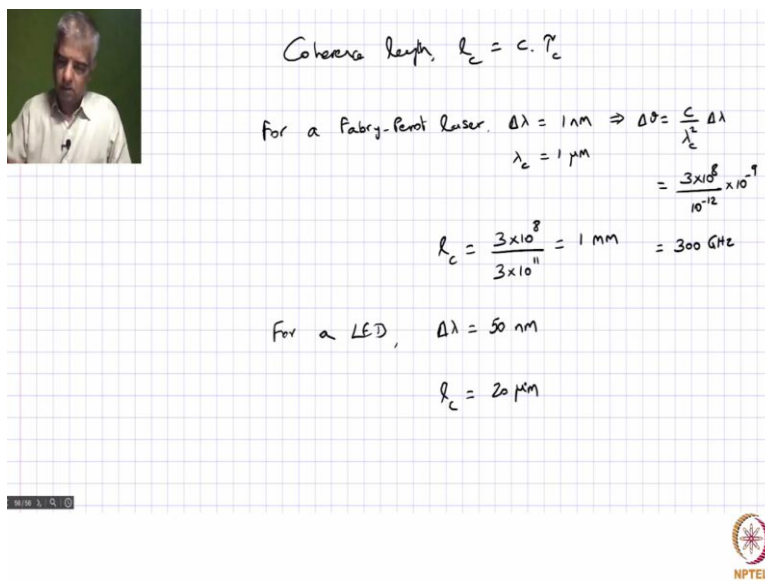 Coherence length, l_c = c. τ_c
For a Fabry-Perot laser, Δλ = 1 nm ⇒ Δυ = c/λ_c² Δλ
λ_c = 1 μm
= 3×10⁸/10⁻¹² × 10⁻⁹
l_c = 3×10⁸/3×10¹¹ = 1 mm = 300 GHz
For a LED, Δλ = 50 nm
l_c = 20 μm
56/56
NPTEL